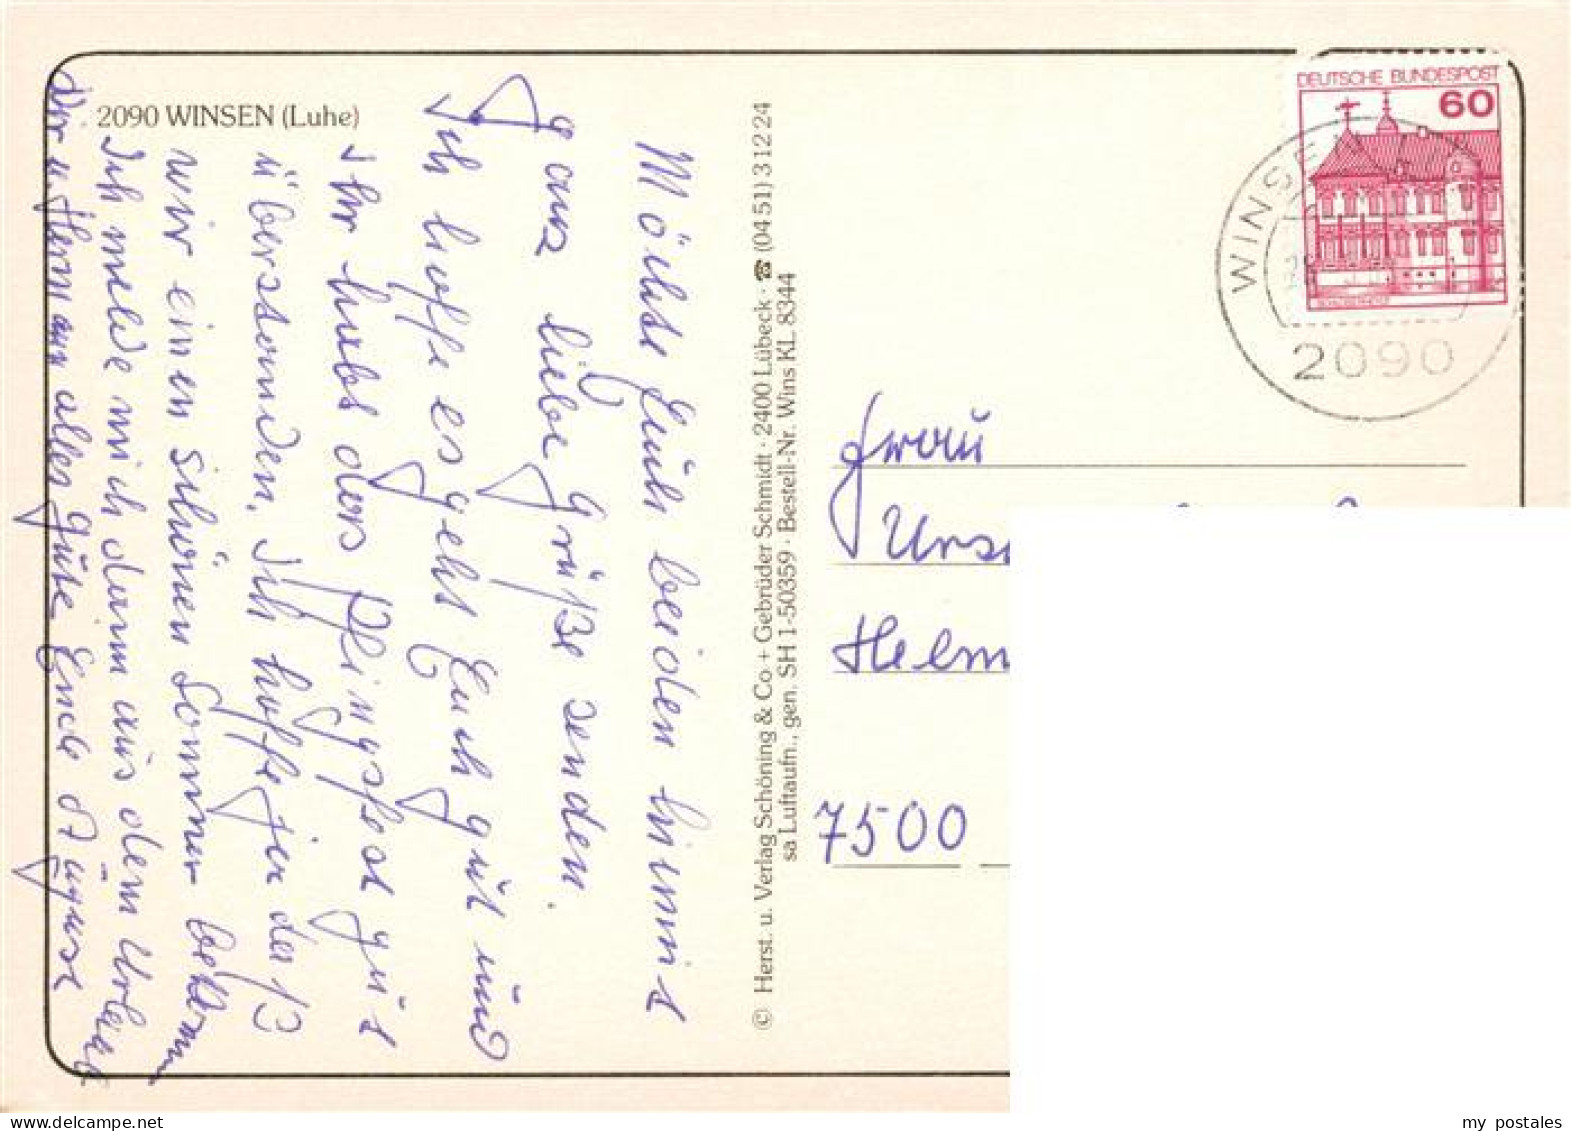 2090 WINSEN (Luhe)
Möchte Euch beiden hiermit
ganz liebe Grüße senden.
Ich hoffe es geht Euch gut und
Ihr habt das Pfingstfest gut
überstanden. Ich hoffe ja daß
wir einen schönen Sommer bekomm
Ich melde mich dann aus dem Urlaub
Dir u. Hermann alles Gute Ende August
© Herst. u. Verlag Schöning & Co + Gebrüder Schmidt · 2400 Lübeck · ☎ (04 51) 3 12 24
sa Luftaufn., gen. SH 1-50359 · Bestell-Nr. Wins KL 8344
DEUTSCHE BUNDESPOST
60
WINSE
2090
Frau
Urs
Helm
7500
my postales